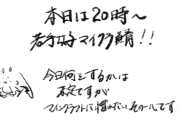 本日は20時〜
若手将マイクラ鯖!!
今日何をするかは
未定ですが
マインクラフトに慣れたいモールです。